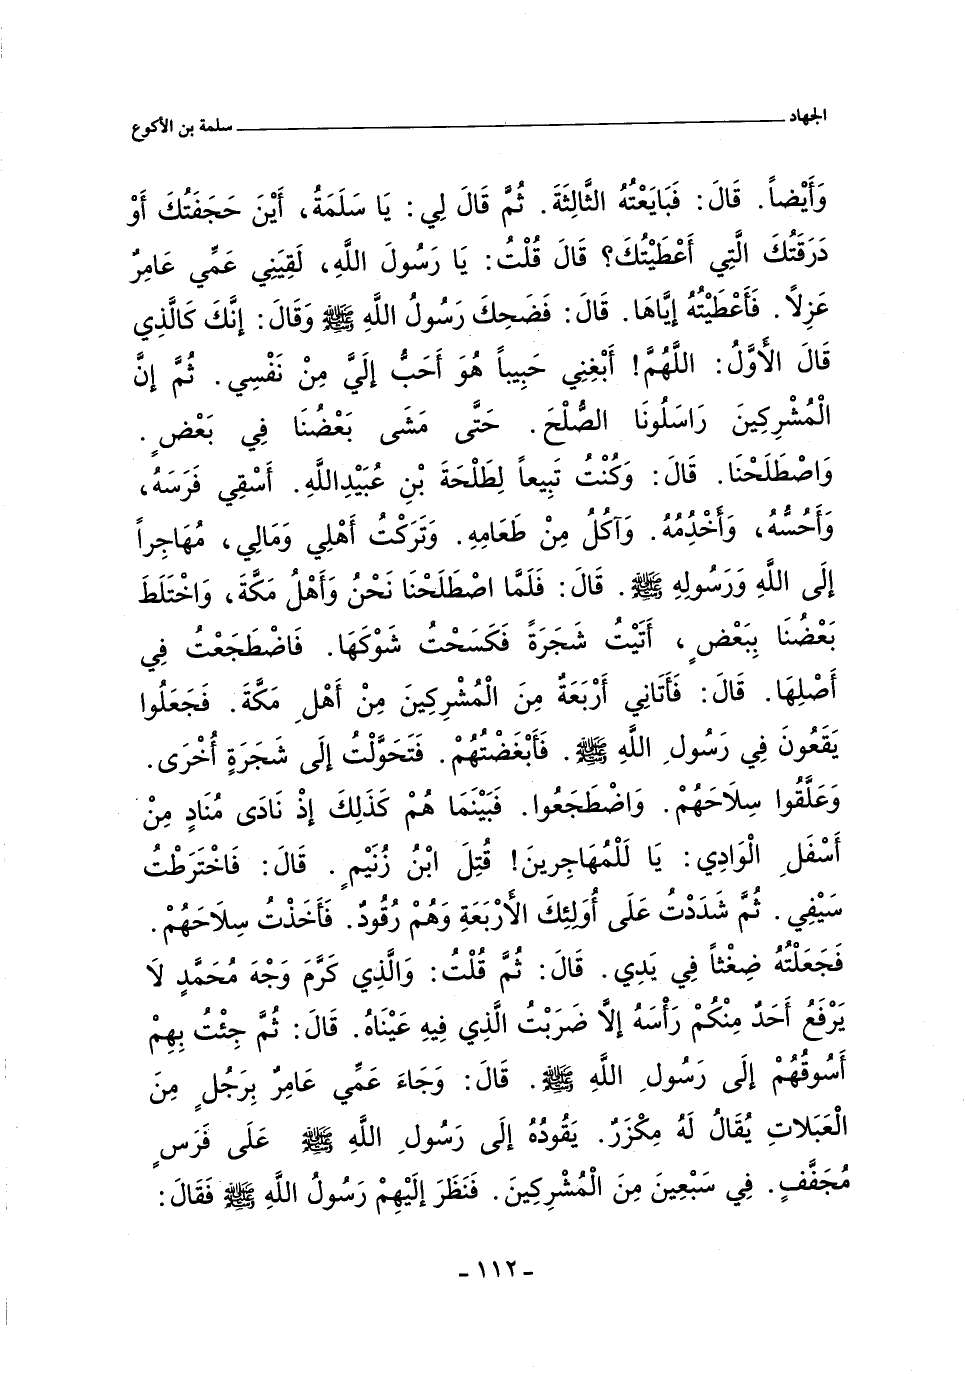 الجهاد ــــــــــــــ سلمة بن الأكوع
وَأَيْضاً. قَالَ: فَبَايَعْتُهُ الثَّالِثَةَ. ثُمَّ قَالَ لِي: يَا سَلَمَةُ، أَيْنَ حَجَفَتُكَ أَوْ
دَرَقَتُكَ الَّتِي أَعْطَيْتُكَ؟ قَالَ قُلْتُ: يَا رَسُولَ اللَّهِ، لَقِيَنِي عَمِّي عَامِرٌ
عَزِلاً. فَأَعْطَيْتُهُ إِيَّاهَا. قَالَ: فَضَحِكَ رَسُولُ اللَّهِ ﷺ وَقَالَ: إِنَّكَ كَالَّذِي
قَالَ الأَوَّلُ: اللَّهُمَّ! أَبْغِنِي حَبِيباً هُوَ أَحَبُّ إِلَيَّ مِنْ نَفْسِي. ثُمَّ إِنَّ
الْمُشْرِكِينَ رَاسَلُونَا الصُّلْحَ. حَتَّى مَشَى بَعْضُنَا فِي بَعْضٍ.
وَاصْطَلَحْنَا. قَالَ: وَكُنْتُ تَبِيعاً لِطَلْحَةَ بْنِ عُبَيْدِاللَّهِ. أَسْقِي فَرَسَهُ،
وَأَحُسُّهُ، وَأَخْدِمُهُ. وَآكُلُ مِنْ طَعَامِهِ. وَتَرَكْتُ أَهْلِي وَمَالِي، مُهَاجِراً
إِلَى اللَّهِ وَرَسُولِهِ ﷺ. قَالَ: فَلَمَّا اصْطَلَحْنَا نَحْنُ وَأَهْلُ مَكَّةَ، وَاخْتَلَطَ
بَعْضُنَا بِبَعْضٍ، أَتَيْتُ شَجَرَةً فَكَسَحْتُ شَوْكَهَا. فَاضْطَجَعْتُ فِي
أَصْلِهَا. قَالَ: فَأَتَانِي أَرْبَعَةٌ مِنَ الْمُشْرِكِينَ مِنْ أَهْلِ مَكَّةَ. فَجَعَلُوا
يَقَعُونَ فِي رَسُولِ اللَّهِ ﷺ. فَأَبْغَضْتُهُمْ. فَتَحَوَّلْتُ إِلَى شَجَرَةٍ أُخْرَى.
وَعَلَّقُوا سِلَاحَهُمْ. وَاضْطَجَعُوا. فَبَيْنَمَا هُمْ كَذَلِكَ إِذْ نَادَى مُنَادٍ مِنْ
أَسْفَلِ الْوَادِي: يَا لَلْمُهَاجِرِينَ! قُتِلَ ابْنُ زُنَيْمٍ. قَالَ: فَاخْتَرَطْتُ
سَيْفِي. ثُمَّ شَدَدْتُ عَلَى أُولئِكَ الأَرْبَعَةِ وَهُمْ رُقُودٌ. فَأَخَذْتُ سِلَاحَهُمْ.
فَجَعَلْتُهُ ضِغْثاً فِي يَدِي. قَالَ: ثُمَّ قُلْتُ: وَالَّذِي كَرَّمَ وَجْهَ مُحَمَّدٍ لَا
يَرْفَعُ أَحَدٌ مِنْكُمْ رَأْسَهُ إِلَّا ضَرَبْتُ الَّذِي فِيهِ عَيْنَاهُ. قَالَ: ثُمَّ جِئْتُ بِهِمْ
أَسُوقُهُمْ إِلَى رَسُولِ اللَّهِ ﷺ. قَالَ: وَجَاءَ عَمِّي عَامِرٌ بِرَجُلٍ مِنَ
الْعَبَلَاتِ يُقَالُ لَهُ مِكْرَزٌ. يَقُودُهُ إِلَى رَسُولِ اللَّهِ ﷺ عَلَى فَرَسٍ
مُجَفَّفٍ. فِي سَبْعِينَ مِنَ الْمُشْرِكِينَ. فَنَظَرَ إِلَيْهِمْ رَسُولُ اللَّهِ ﷺ فَقَالَ:
- ١١٢ -